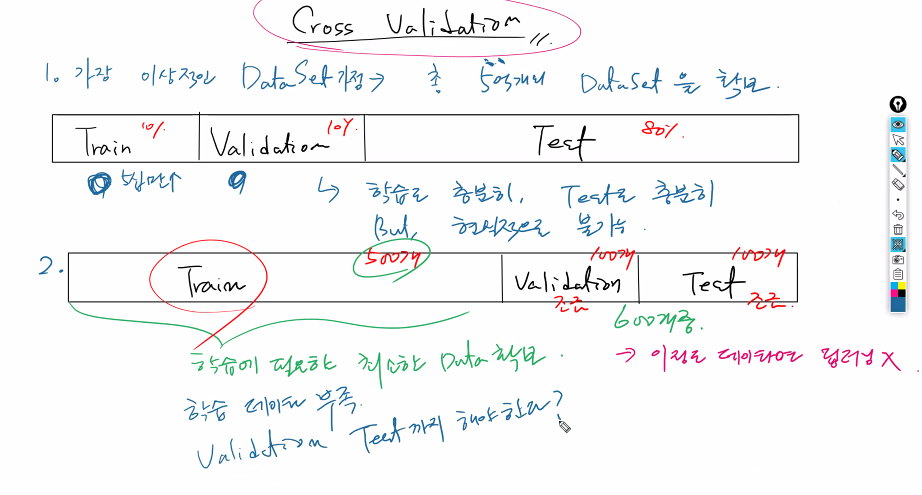 Cross Validation
1. 가장 이상적인 DataSet 가정 → 총 50억개의 DataSet을 확보.
Train 10% Validation 10% Test 80%
50만개↑
↳ 학습도 충분히, Test도 충분히
But, 현실적으로 불가능.
2.
500개 100개 100개
Train Validation Test
조금 조금
600개중.
학습에 필요한 최소한 Data 확보.
→ 이정도 데이터면 딥러닝 X.
학습 데이터 부족.
Validation Test까지 해야한다?